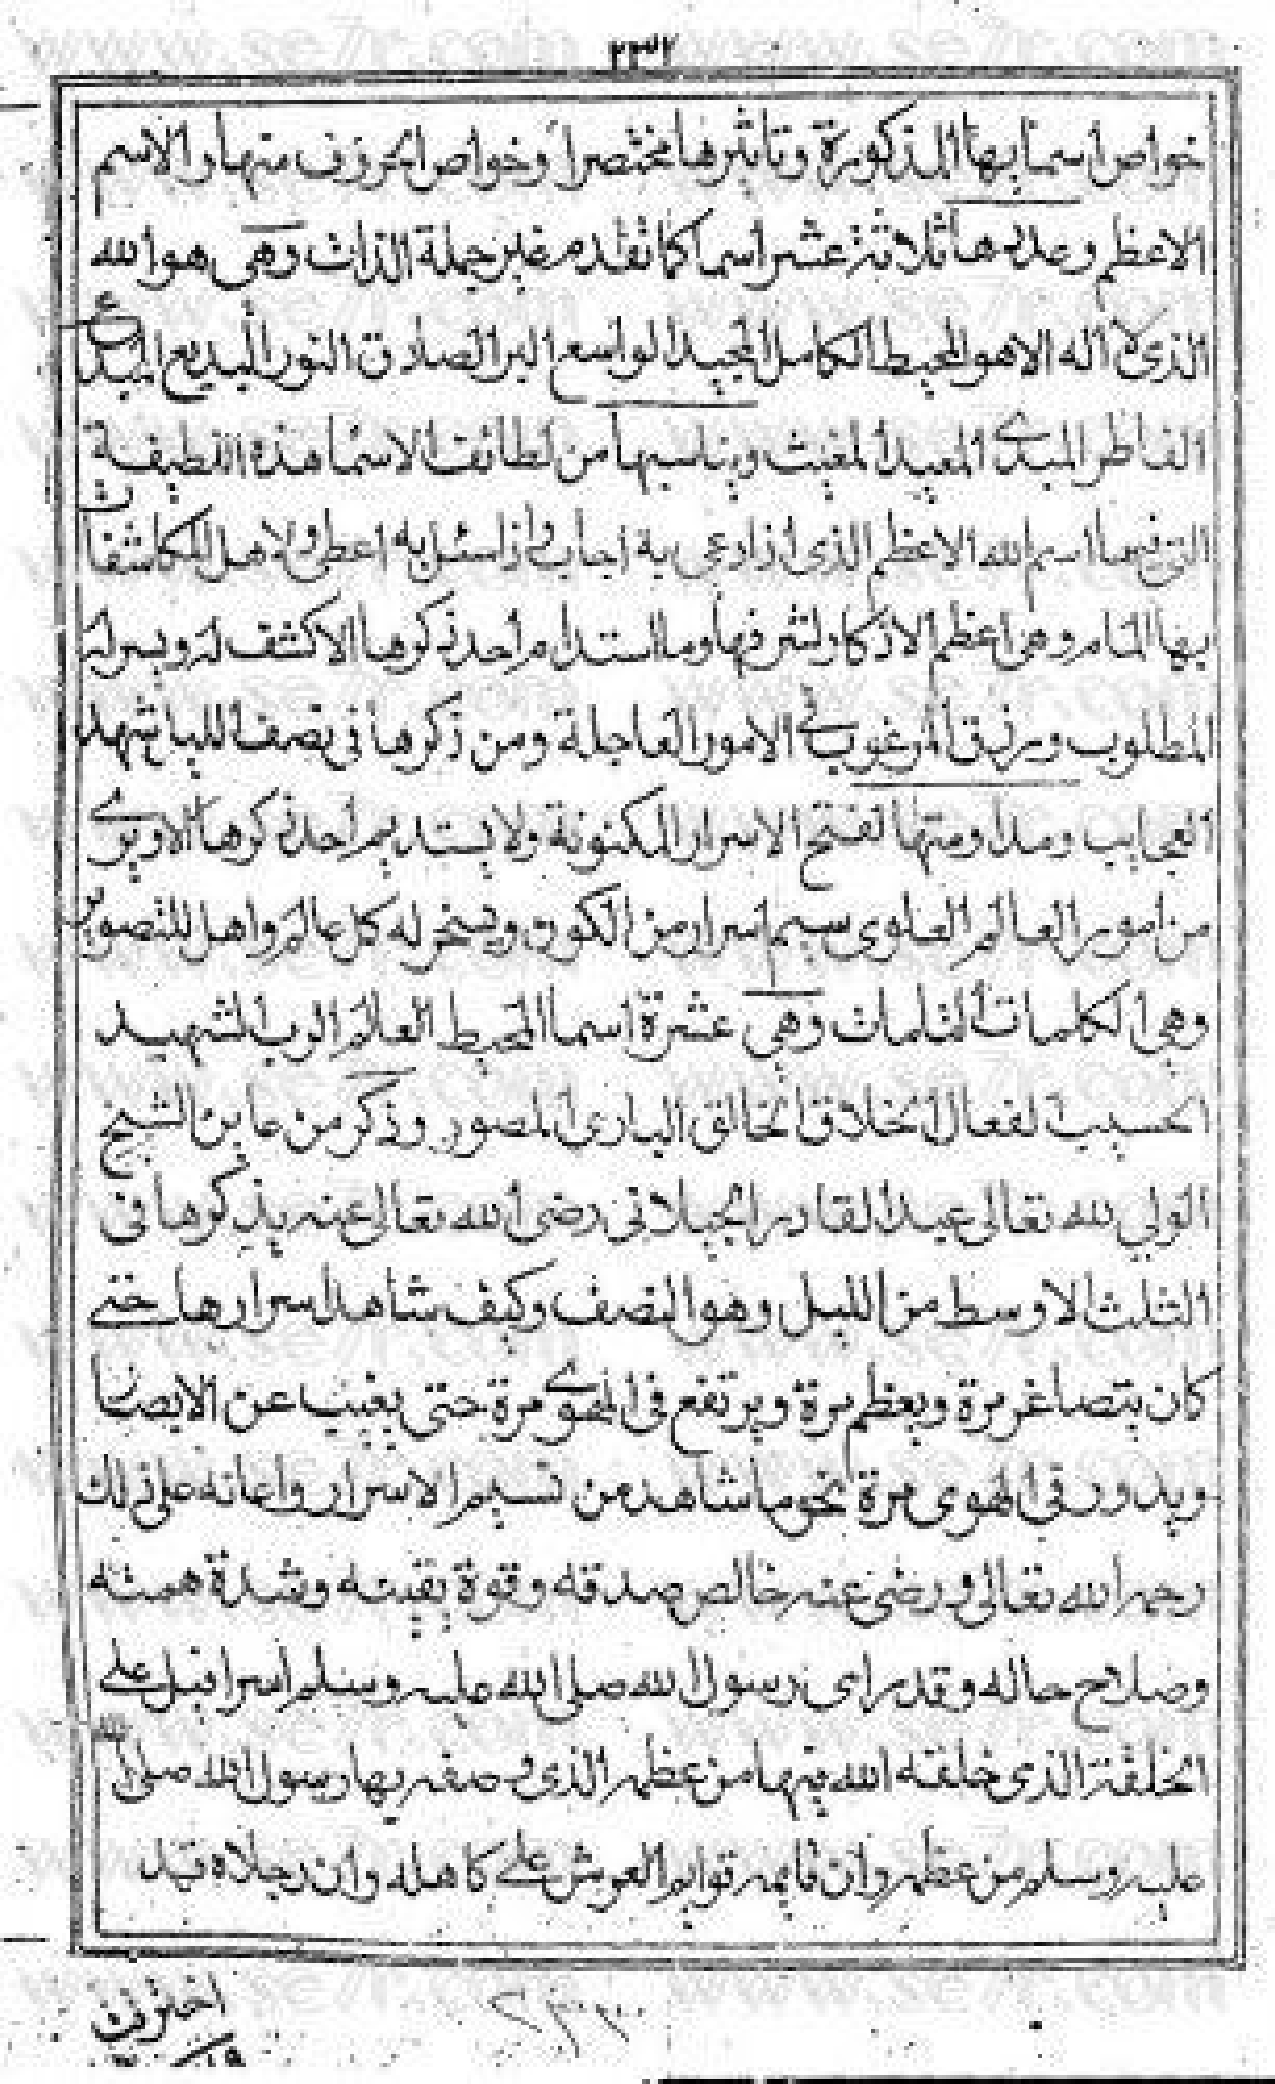 ٢٣٢
خواص اسمايها المذكورة وتاثيرها مختصرا وخواص الحروف منها والاسم
الاعظم وعدتها ثلاثة عشر اسما كما تقدم من جملة الذات وهى هو الله
الذى لا اله الا هو المحيط الكامل المجيد الواسع البر الصادق النور البديع المبدع
الفاطر المبدى المعيد المغيث ويناسبها من لطائف الاسما هذه اللطيفة
التى فيها اسم الله الاعظم الذى اذا دعى به اجاب واذا سئل به اعطى ولاهل المكاشفات
بها المام وهى اعظم الاذكار لشرفها وما استدام احد ذكرها الا كشف له ويسر له
المطلوب ورزق المرغوب فى الامور العاجلة ومن ذكرها فى نصف الليل شهد
العجايب ومداومتها تفتح الاسرار المكنونة ولا يستديم احد ذكرها الا ويرى
من امور العالم العلوى سيما اسرار من الكون ويسخر له كل عالم واهل التصوير
وهى الكلمات التامات وهى عشرة اسما المحيط العالم الرب الشهيد
الحسيب الفعال الخلاق الخالق البارى المصور وذكر من عاين الشيخ
الولى لله تعالى عبد القادر الجيلانى رضى الله تعالى عنه يذكرها فى
الثلث الاوسط من الليل وهو النصف وكيف شاهد اسرارها حتى
كان يتصاغر مرة ويعظم مرة ويرتفع فى الهوى مرة حتى يغيب عن الابصار
ويدور فى الهوى مرة نحو ما شاهد من تسيم الاسرار واعانه على ذلك
رحمه الله تعالى ورضى عنه خالص صدقه وقوة يقينه وشدة همته
وصلاح حاله وقد راى رسول الله صلى الله عليه وسلم اسرافيل على
الخلقة الذى خلقه الله فيها من عظم الذى وصفه بها رسول الله صلى الله
عليه وسلم من عظمه وان قايمة قوايم العرش على كاهله وان رجلاه قيد
اخترقت